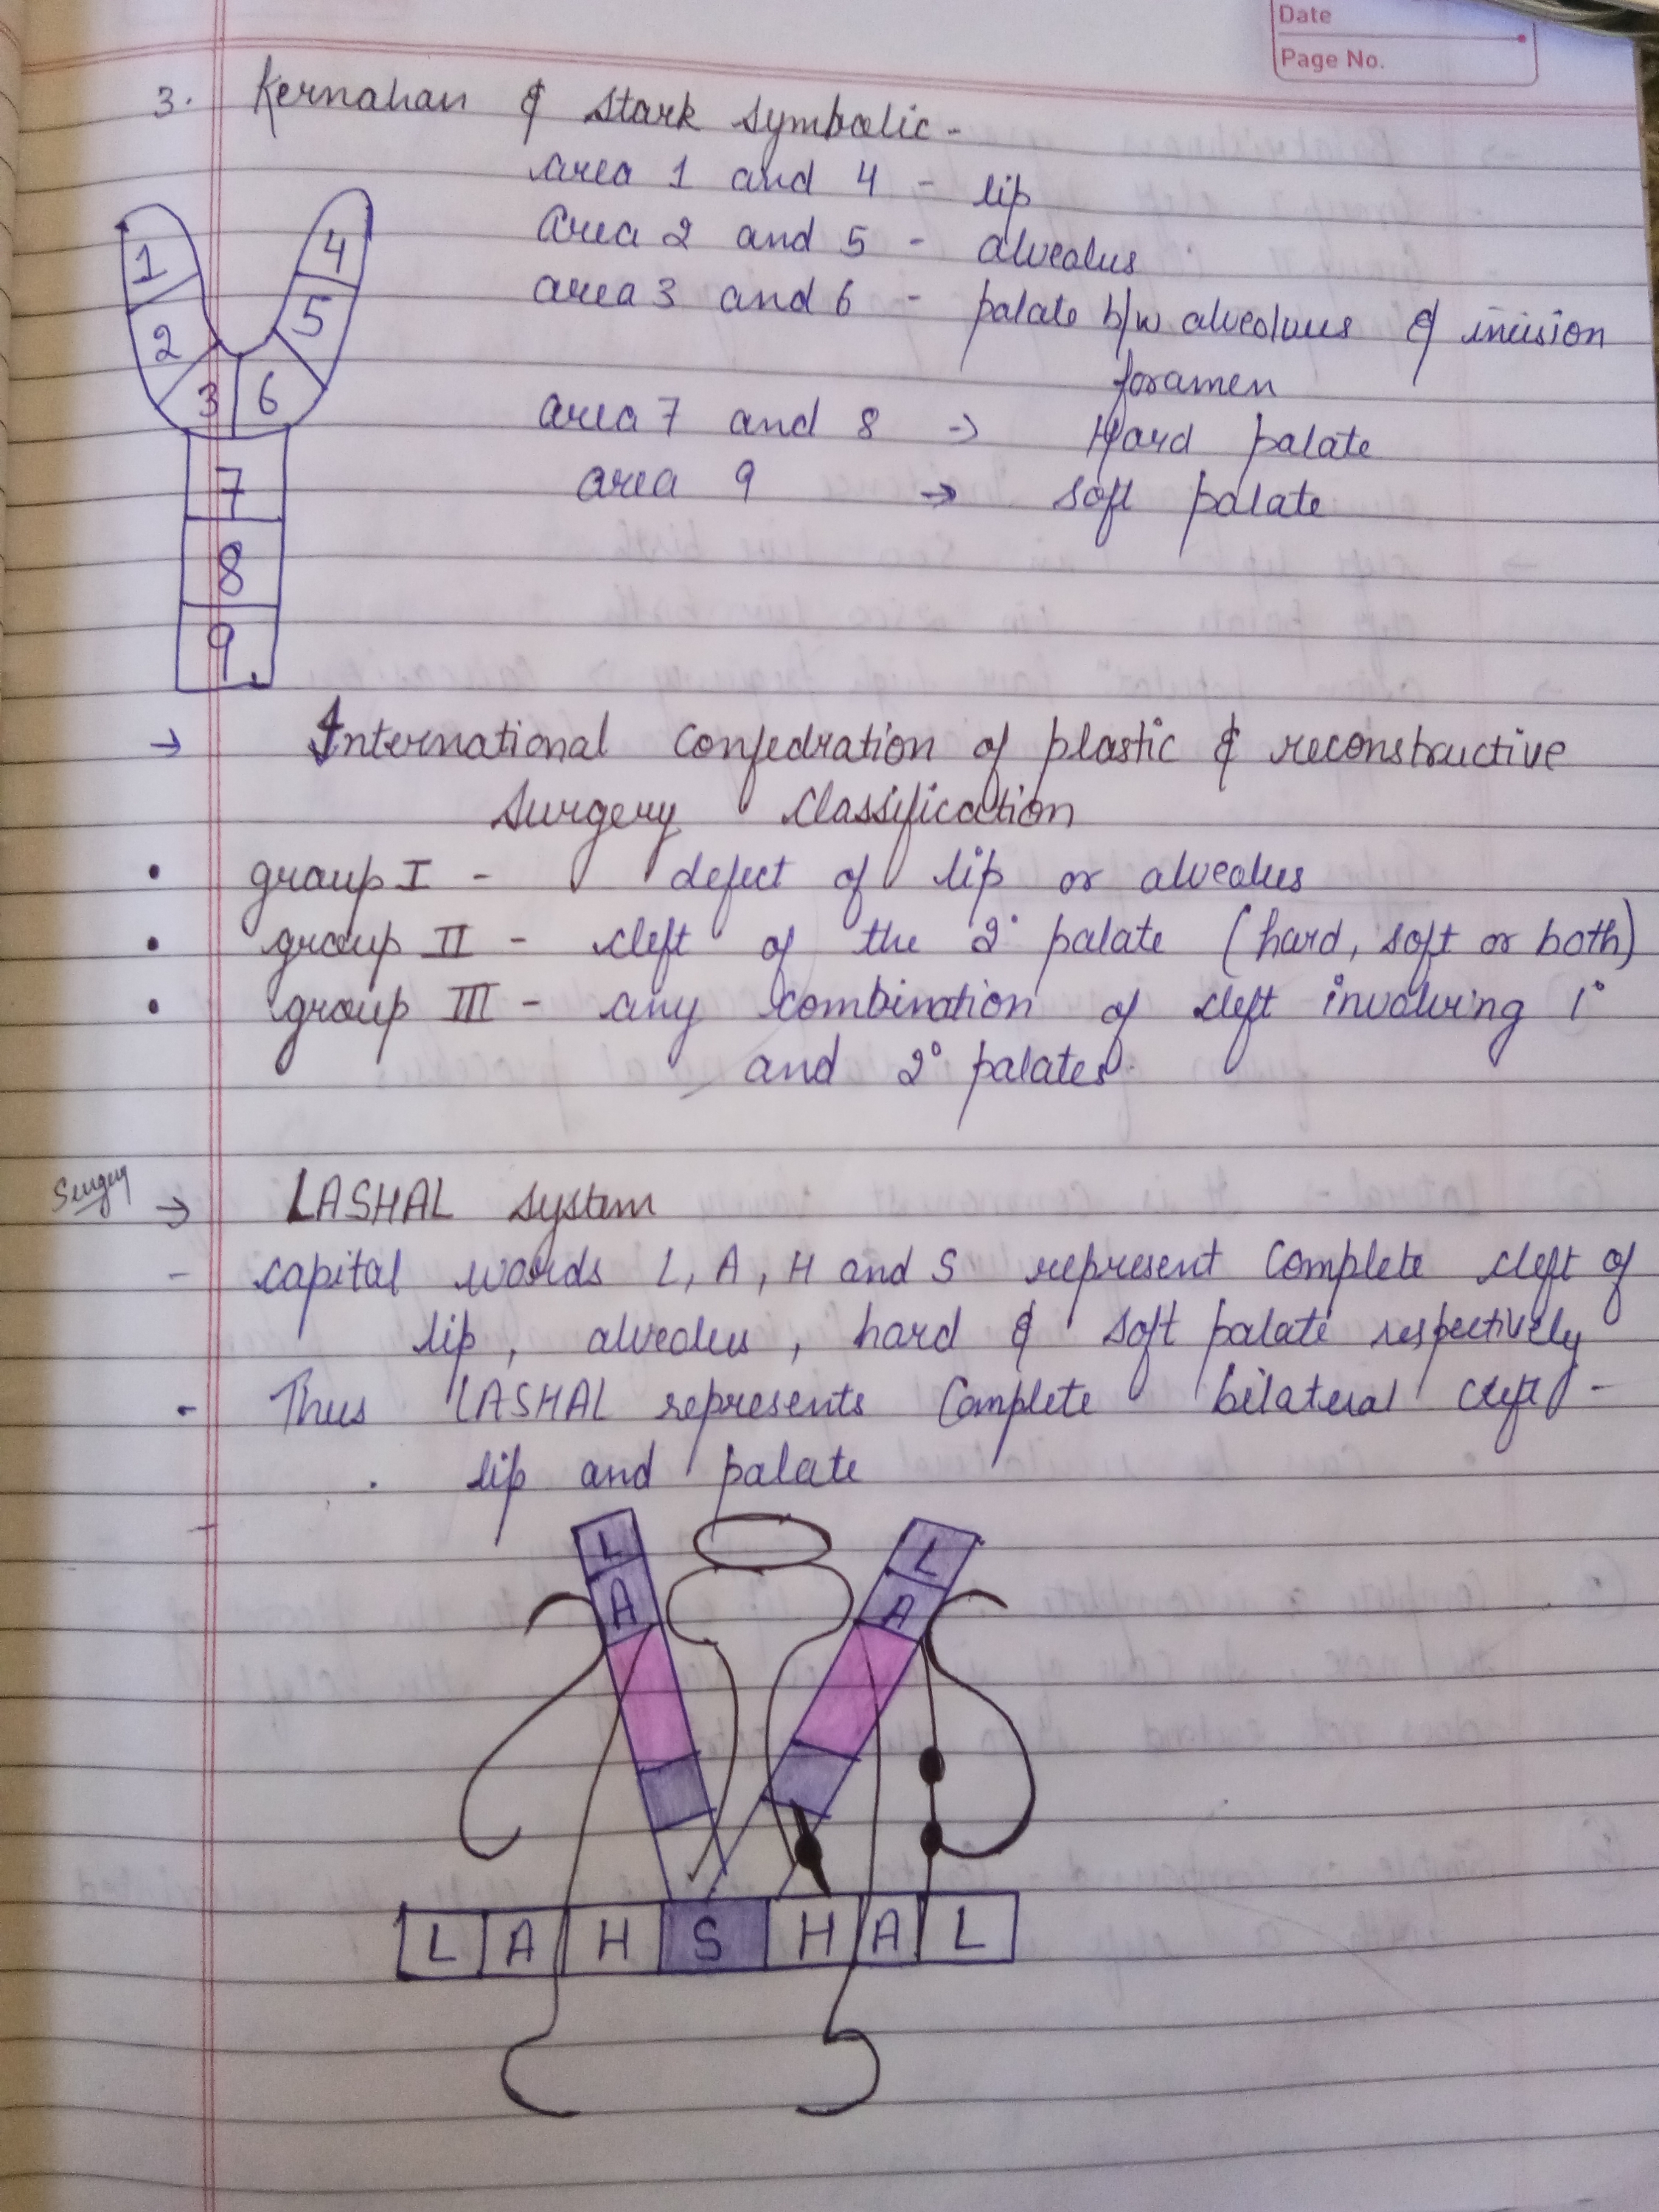 Date
Page No.
3. Kernahan & Stark Symbolic -
area 1 and 4 - lip
area 2 and 5 - alveolus
area 3 and 6 - palate b/w alveolus & incision
foramen
area 7 and 8 → Hard palate
area 9 → soft palate
1
4
2
5
3 6
7
8
9
→ International Confedration of plastic & reconstructive
Surgery Classification
• group I - defect of lip or alveolus
• group II - cleft of the 2° palate (hard, soft or both)
• group III - any combination of cleft involving 1°
and 2° palates.
Surgery
→ LASHAL system
- capital words L, A, H and S represent complete cleft of
lip, alveolus, hard & soft palate respectively
- Thus LASHAL represents Complete bilateral cleft -
lip and palate
L L
A A
L A H S H A L